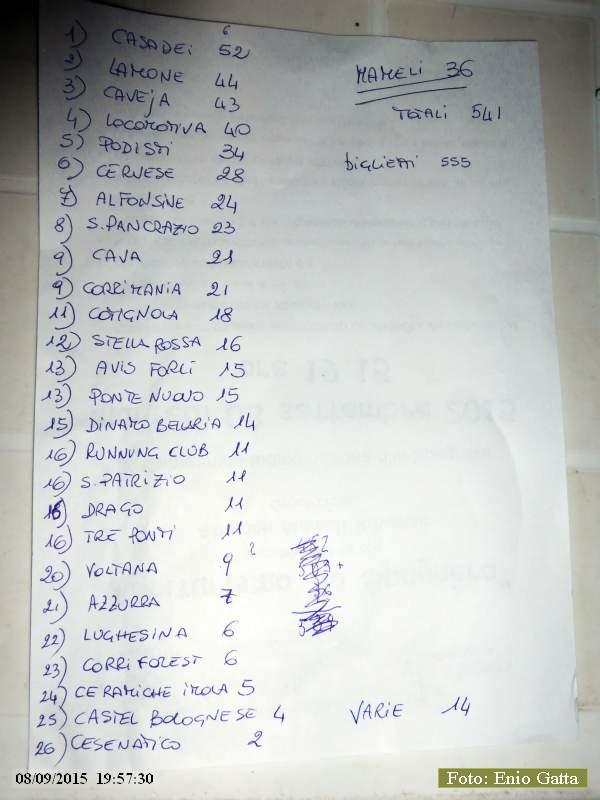 1) CASADEI 52
2) LAMONE 44
3) CAVEJA 43
4) LOCOMOTIVA 40
5) PODISTI 34
6) CERVESE 28
7) ALFONSINE 24
8) S. PANCRAZIO 23
9) CAVA 21
9) CORRIMANIA 21
11) COTIGNOLA 18
12) STELLA ROSSA 16
13) AVIS FORLÌ 15
13) PONTE NUOVO 15
15) DINAMO BELLARIA 14
16) RUNNUNG CLUB 11
16) S. PATRIZIO 11
16) DRAGO 11
16) TRE PONTI 11
20) VOLTANA 9
21) AZZURRA 7
22) LUGHESINA 6
23) CORRI FOREST 6
24) CERAMICHE IMOLA 5
25) CASTEL BOLOGNESE 4
26) CESENATICO 2
MAMELI 36
TOTALI 541
BIGLIETTI 555
VARIE 14
08/09/2015 19:57:30
Foto: Enio Gatta